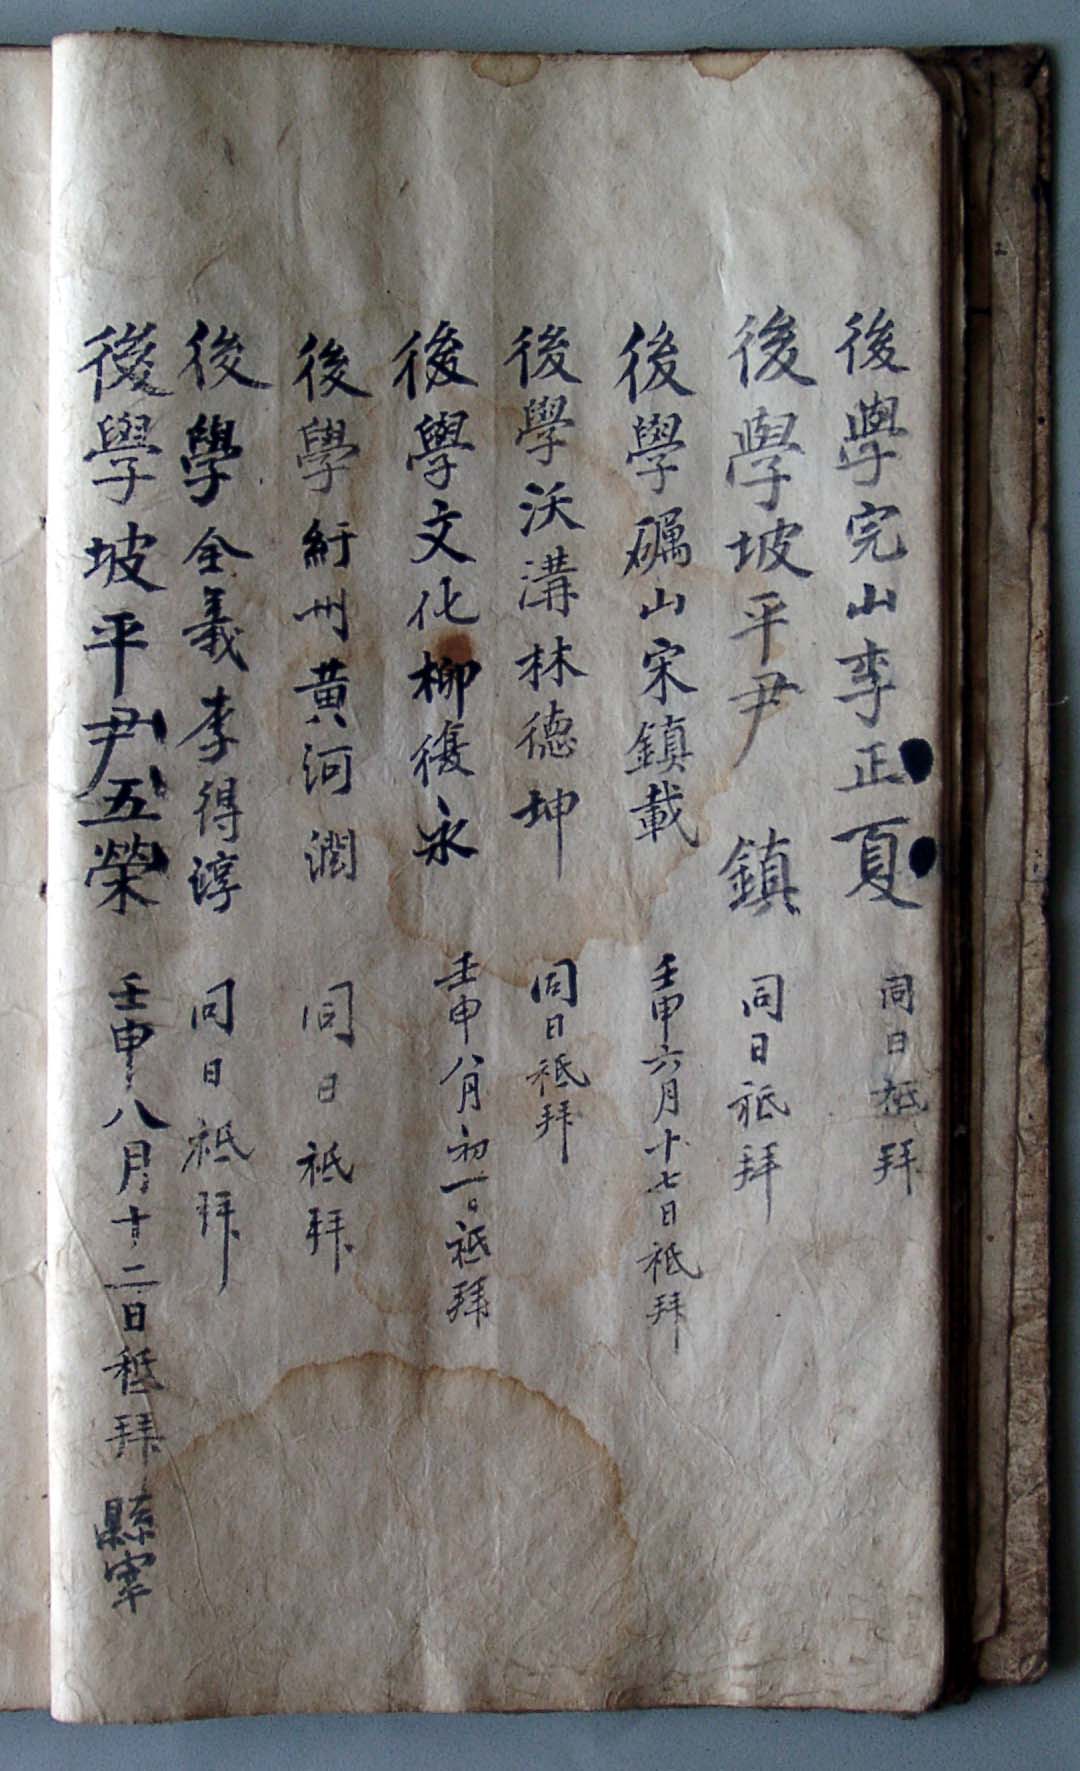 後學完山李正夏 同日祗拜
後學坡平尹 鎮 同日祗拜
後學礪山宋鎮載 壬申六月十七日祗拜
後學沃溝林德坤 同日祗拜
後學文化柳復永 壬申八月初一日祗拜
後學紆州黃河潤 同日祗拜
後學全義李得淳 同日祗拜
後學坡平尹五榮 壬申八月十二日祗拜 縣宰